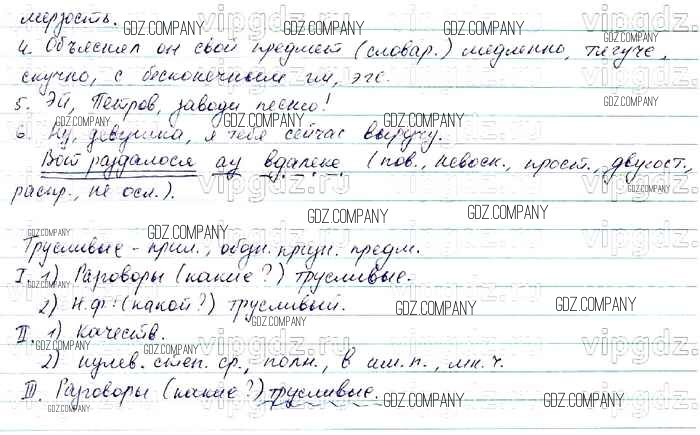 мерзость.
4. Объяснял он свой предмет (словар.) медленно, тягуче,
скучно, с бесконечным гм, эге.
5. Эй, Петров, заводи песню!
6. Ну, девушка, я тебя сейчас выручу.
Вот раздалося ау вдалеке (пов., невоск., прост., двусост.,
распр., не осл.).
Трусливые - прил., обозн. призн. предм.
I. 1) Разговоры (какие?) трусливые.
2) Н.ф: (какой?) трусливый.
II. 1) Качеств.
2) нулев. степ. ср., полн., в им.п., мн.ч.
III. Разговоры (какие?) трусливые.
GDZ.COMPANY
vipgdz.ru